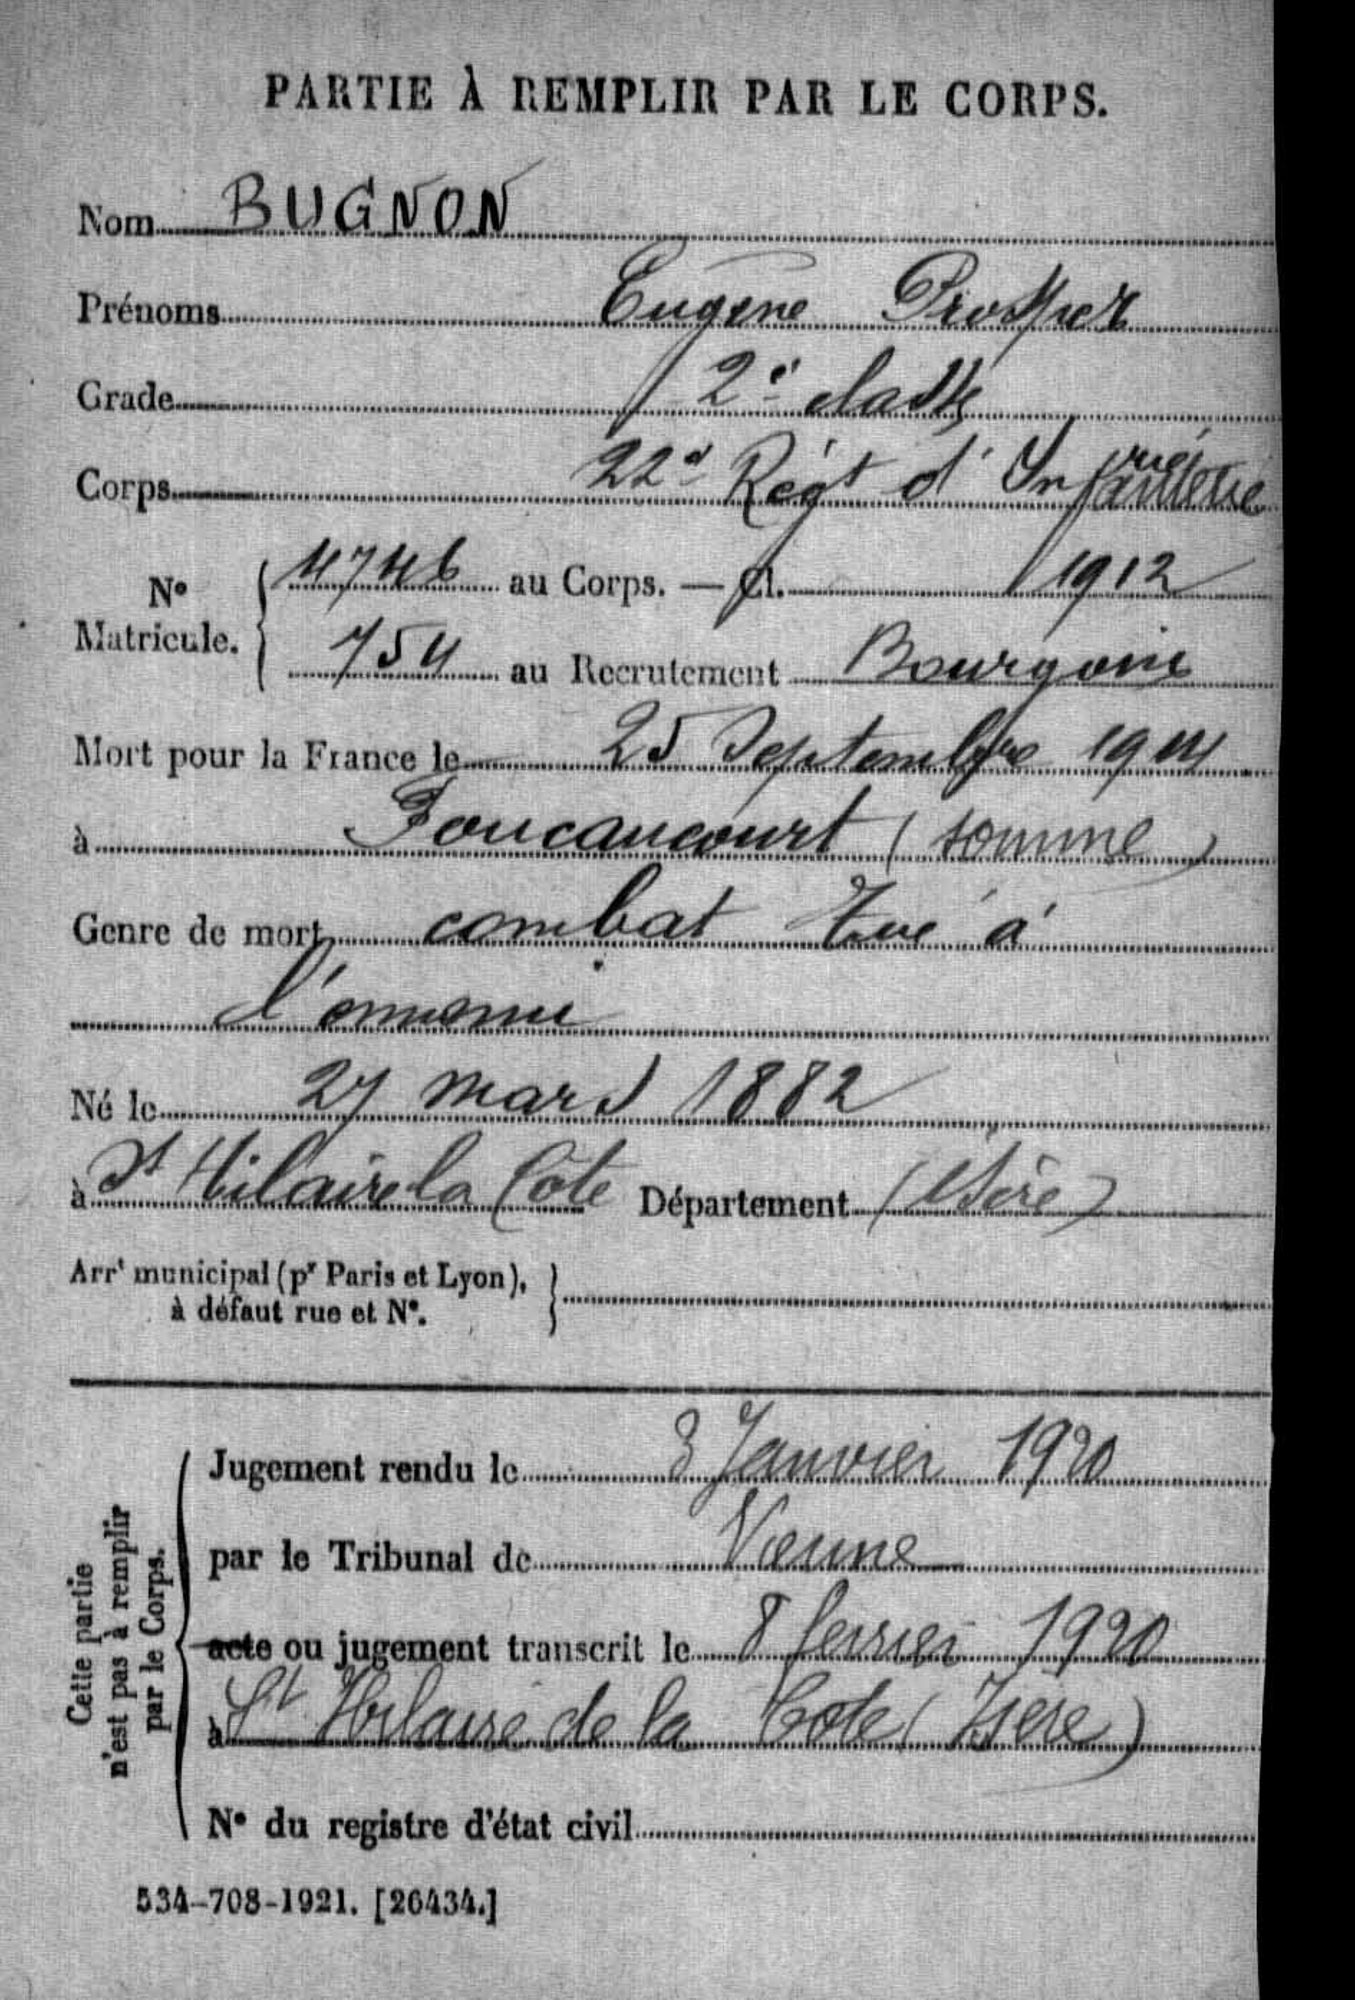 PARTIE À REMPLIR PAR LE CORPS.
Nom BUGNON
Prénoms Eugène Prosper
Grade 2e classe
Corps 22e Régt d'Infanterie
No Matricule. 4746 au Corps. — Cl. 1912
754 au Recrutement Bourgoin
Mort pour la France le 25 Septembre 1914
à Foucaucourt (Somme)
Genre de mort combat Tué à
l'ennemi
Né le 27 mars 1882
à St Hilaire la Côte Département (Isère)
Arrt municipal (pr Paris et Lyon),
à défaut rue et No.
Cette partie
n'est pas à remplir
par le Corps.
Jugement rendu le 3 Janvier 1920
par le Tribunal de Vienne
acte ou jugement transcrit le 8 fevrier 1920
à St Hilaire de la Cote (Isere)
No du registre d'état civil
534-708-1921. [26434.]